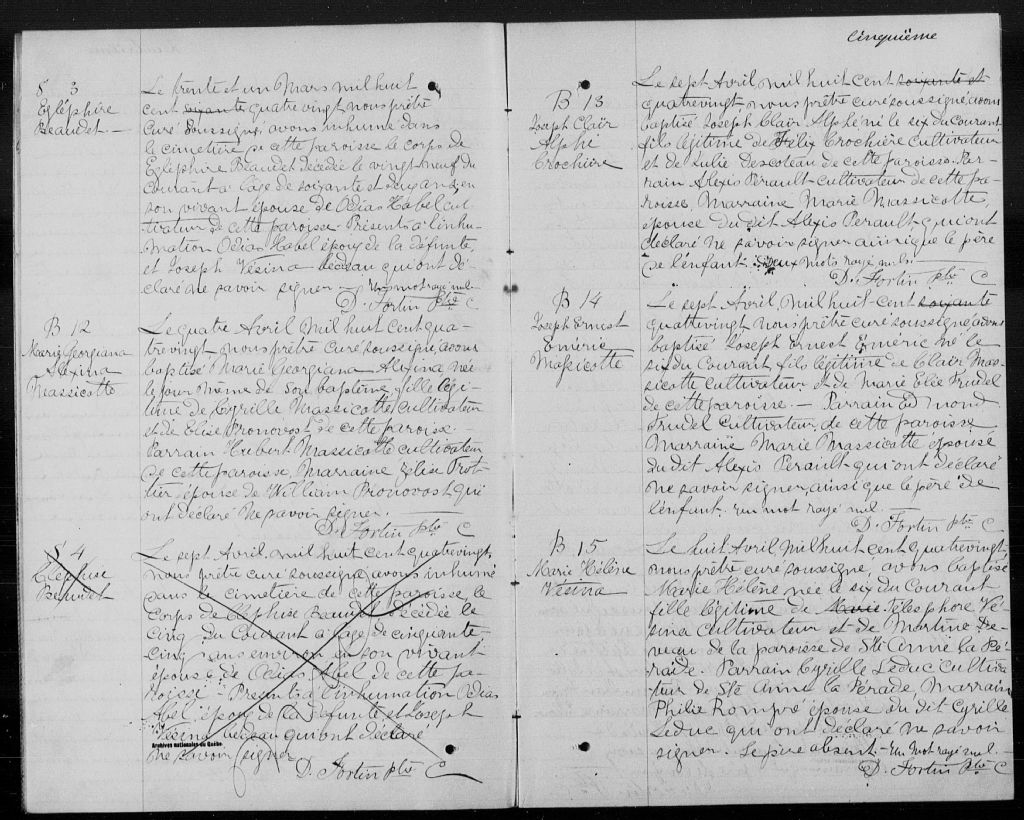 S 3
Egléphire
Beaudet —
Le trente et un Mars mil huit
cent soixante quatre vingt nous prêtre
Curé Soussigné, avons inhumé dans
le cimetière de cette paroisse le corps de
Egléphire Beaudet décédée le vingt neuf du
Courant à l'age de soixante et ans, en
son vivant épouse de Odias Habel cul
tivateur de cette paroisse Présents à l'inhu-
mation Odias Habel époux de la défunte
et Joseph Vésina bedeau qui ont dé-
claré ne savoir signer — Un mot rayé nul —
D. Fortin Ptre C
B 12
Marie Georgiana
Alexina
Massicotte
Le quatre Avril Mil huit cent qua-
tre vingt, nous prêtre curé soussigné, avons
baptisé Marie Georgiana Alexina née
le jour même de son baptême, fille légi-
time de Cyrille Massicotte cultivateur
et de Elise Pronovost de cette paroisse —
Parrain Hubert Massicotte cultivateur
de cette paroisse, Marraine Elise Trot-
tier épouse de William Pronovost qui
ont déclaré ne savoir signer.
D. Fortin Ptre C
S 4
Eléphise
Beaudet
Le sept Avril, mil huit cent quatre vingt,
nous prêtre curé soussigné, avons inhumé
dans le cimetière de cette paroisse, le
Corps de Beaudet décédée le
Cinq du Courant à l'age de cinquante-
cinq ans environ en son vivant
épouse de Odias Abel de cette pa-
roisse — Présents à l'inhumation Odias
Abel, époux de la défunte et Joseph
Vésina bedeau qui ont déclaré
Archives nationales du Québec
ne savoir signer
D. Fortin ptre C
Cinquième
B 13
Joseph Claïr
Alphé
Crochière
Le sept Avril, mil huit cent soixante et
quatre vingt, nous prêtre curé soussigné, avons
baptisé Joseph Claïr Alphé né le six du Courant
fils légitime de Félix Crochière Cultivateur
et de Julie Descoteau de cette paroisse. Par-
rain Alexis Perault cultivateur de cette pa-
roisse, Marraine Marie Massicotte,
épouse du dit Alexis Perault, qui ont
déclaré ne savoir signer ainsi que le père
de l'enfant. Deux mots rayé nuls.
D. Fortin Ptre C
B 14
Joseph Ernest
Eméric
Massicotte
Le sept Avril, Mil huit cent soixante
quatre vingt, nous prêtre curé soussigné, avons
baptisé Joseph Ernest Eméric né le
six du Courant fils légitime de Claïr Mas-
sicotte cultivateur et de Marie Elie Trudel
de cette paroisse. — Parrain Ed mond
Trudel Cultivateur, de cette paroisse
Marraine Marie Massicotte épouse
du dit Alexis Perault qui ont déclaré
ne savoir signer, ainsi que le père de
l'enfant. Un mot rayé nul.
D. Fortin ptre C
B 15
Marie Hélène
Vésina
Le huit Avril Mil huit cent quatre vingt,
nous prêtre curé soussigné, avons baptisé
Marie Hélène née le six du Courant
fille légitime de Marie Télesphore Vé-
sina cultivateur et de Martine
de la paroisse de Ste Anne la Pé-
rade. Parrain Cyrille Leduc Cultiva-
teur de Ste Anne la Perade, Marraine
Philie Rompré épouse du dit Cyrille
Leduc qui ont déclaré ne savoir
signer. Le père absent — Un mot rayé nul —
D. Fortin Ptre C